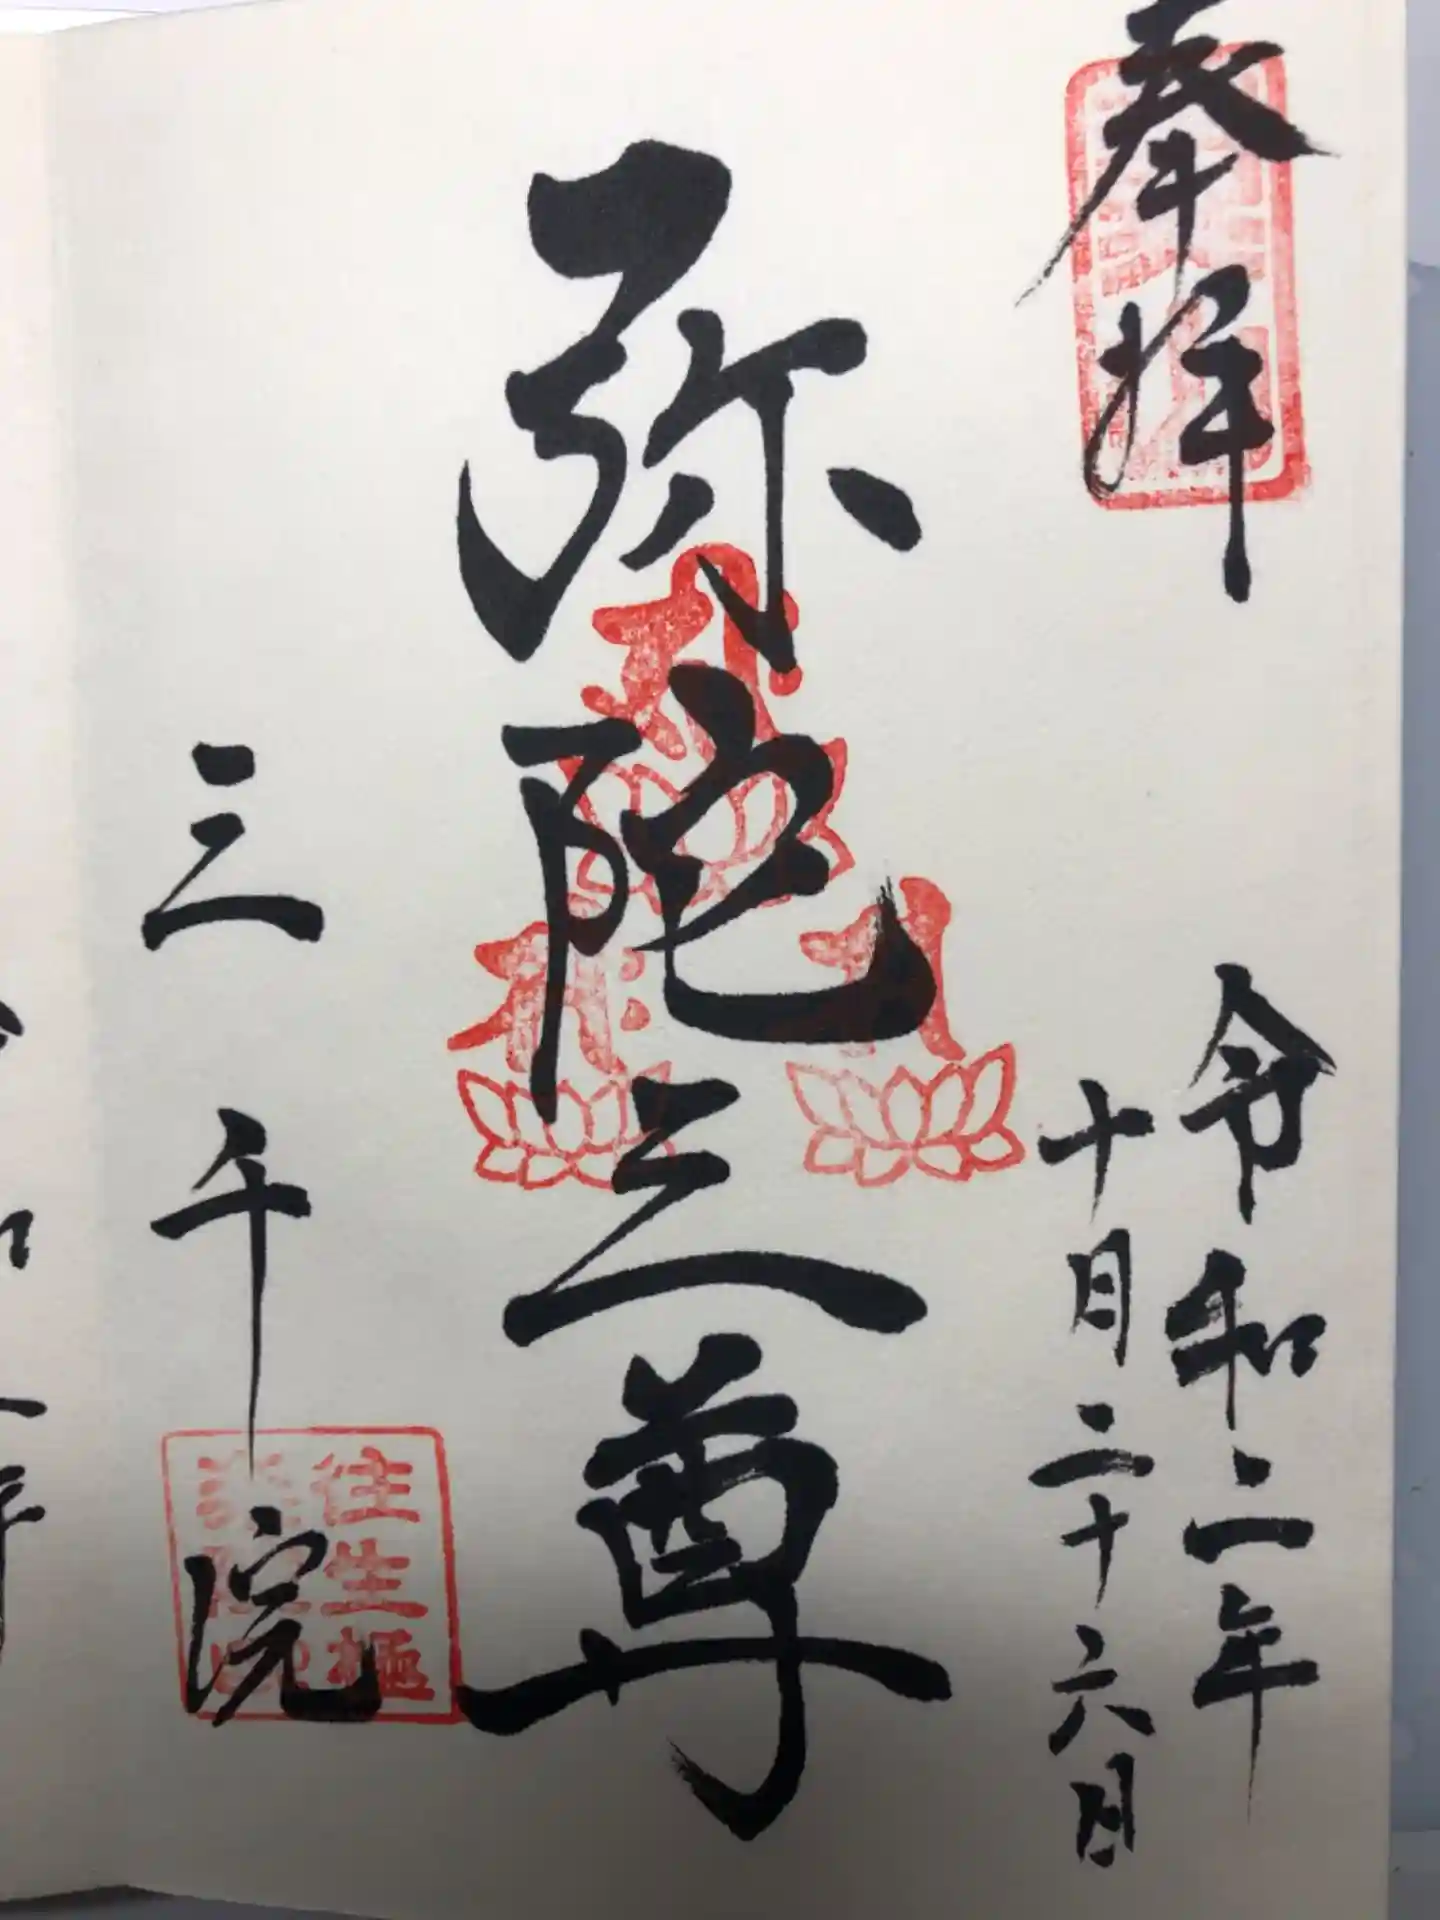 奉拝
令和二年
十月二十六日
弥陀三尊
三千院
往生極